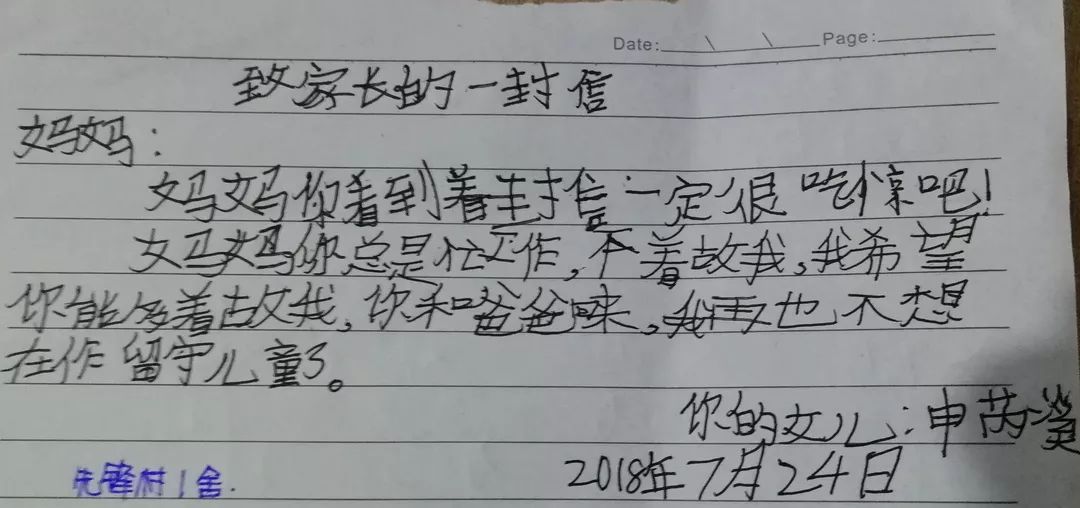 Date: \ \ Page:
致家长的一封信
妈妈：
妈妈你看到着封信一定很吃惊吧！
妈妈你总是忙工作，不着故我，我希望
你能多着故我，你和爸爸回来，我再也不想
在作留守儿童了。
你的女儿：申芮
2018年7月24日
先锋村1舍.